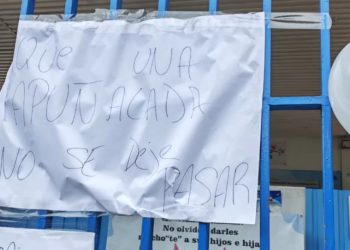 QUE UNA
APUÑALADA
NO SE DEJE
PASAR
No olviden darles
mucho"te" a sus hijos e hija